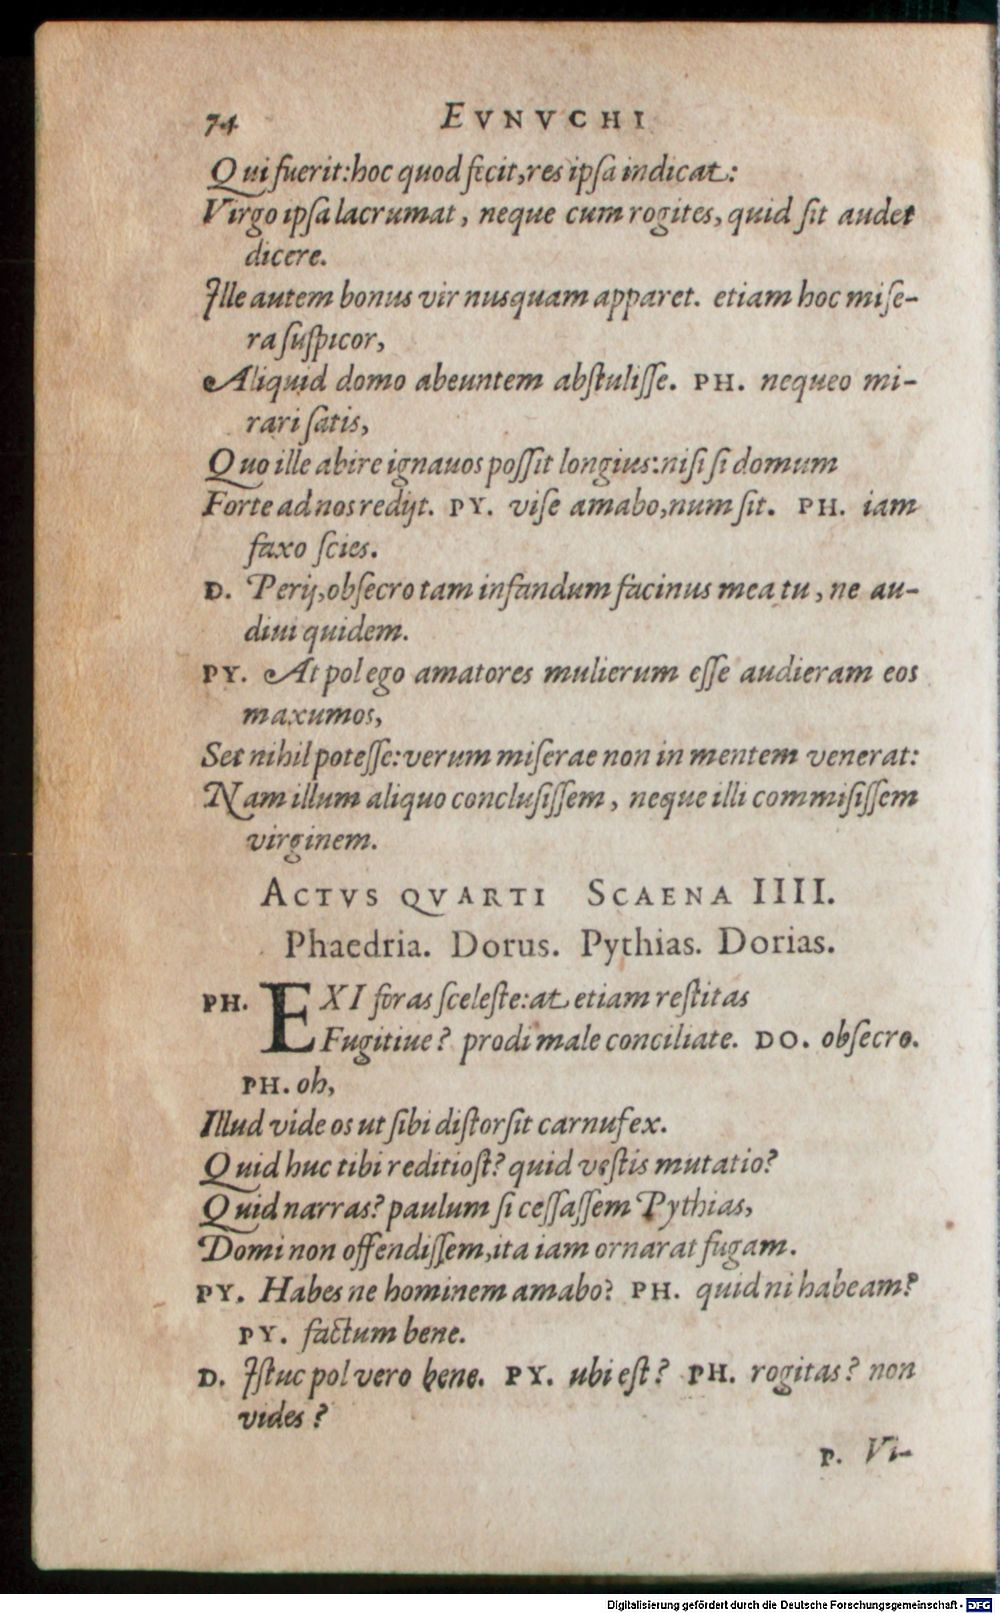 74 EVNVCHI
Qui fuerit: hoc quod fecit, res ipſa indicat:
Virgo ipſa lacrumat, neque cum rogites, quid ſit audet
dicere.
Ille autem bonus vir nusquam apparet. etiam hoc miſe-
ra ſuſpicor,
Aliquid domo abeuntem abſtuliſſe. PH. nequeo mi-
rari ſatis,
Quo ille abire ignauos poſſit longius: niſi ſi domum
Forte ad nos redijt. PY. viſe amabo, num ſit. PH. iam
faxo ſcies.
D. Perij, obſecro tam infandum facinus mea tu, ne au-
diui quidem.
PY. At pol ego amatores mulierum eſſe audieram eos
maxumos,
Set nihil poteſſe: verum miſerae non in mentem venerat:
Nam illum aliquo concluſiſſem, neque illi commiſiſſem
virginem.
ACTVS QVARTI SCAENA IIII.
Phaedria. Dorus. Pythias. Dorias.
PH. EXI foras ſceleſte: at etiam reſtitas
Fugitiue? prodi male conciliate. DO. obſecro.
PH. oh,
Illud vide os ut ſibi diſtorſit carnufex.
Quid huc tibi reditioſt? quid veſtis mutatio?
Quid narras? paulum ſi ceſſaſſem Pythias,
Domi non offendiſſem, ita iam ornarat fugam.
PY. Habes ne hominem amabo? PH. quid ni habeam?
PY. factum bene.
D. Iſtuc pol vero bene. PY. ubi eſt? PH. rogitas? non
vides?
P. Vi-
Digitalisierung gefördert durch die Deutsche Forschungsgemeinschaft - DFG